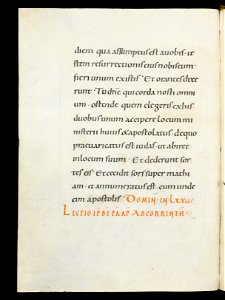 diem qua assumptus est a vobis · te
stem resurrectionis eius nobiscum
fieri unum ex istis · Et orantes dixe
runt · Tu dñe qui corda nosti omni
um · ostende quem elegeris ex his
duobus unum accipere locum mi
nisterii huius & apostolatus · de quo
praevaricatus est iudas ut abiret
in locum suum · Et dederunt sor
tes eis · Et cecidit sors super mathi
am · et annumeratus est cum unde
cim apostolis · DOMIN · IN LXX
LECTIO EP BE PAƲ AD CORINTH